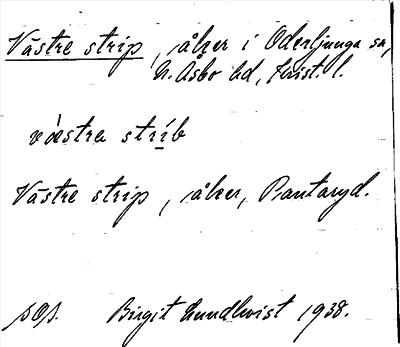 Västre strip, åker i Oderljunga sn,
N. Åsbo hd, Krist. l.
västra strib
Västre strip, åker, Bantaryd.
pop. Birgit Lundkvist 1938.